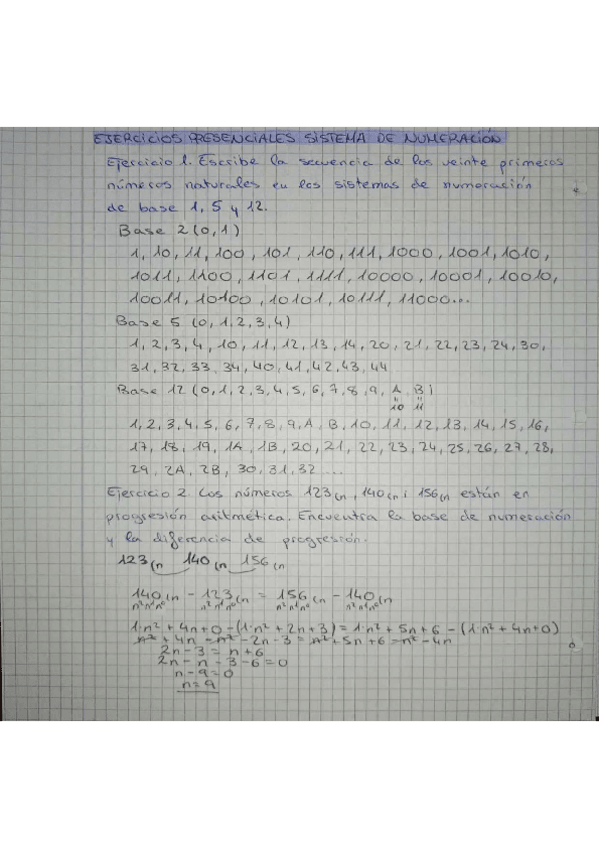 EJERCICIOS PRESENCIALES SISTEMA DE NUMERACIÓN
Ejercicio 1. Escribe la secuencia de los veinte primeros
números naturales en los sistemas de numeración
de base 1, 5 y 12.
Base 2 (0,1)
1, 10, 11, 100, 101, 110, 111, 1000, 1001, 1010,
1011, 1100, 1101, 1111, 10000, 10001, 10010,
10011, 10100, 10101, 10111, 11000...
Base 5 (0,1,2,3,4)
1, 2, 3, 4, 10, 11, 12, 13, 14, 20, 21, 22, 23, 24, 30,
31, 32, 33, 34, 40, 41, 42, 43, 44
Base 12 (0,1,2,3,4,5,6,7,8,9, A, B)
10 11
1, 2, 3, 4, 5, 6, 7, 8, 9, A, B, 10, 11, 12, 13, 14, 15, 16,
17, 18, 19, 1A, 1B, 20, 21, 22, 23, 24, 25, 26, 27, 28,
29, 2A, 2B, 30, 31, 32 ...
Ejercicio 2. Los números 123(n, 140(n i 156(n están en
progresión aritmética. Encuentra la base de numeración
y la diferencia de progresión.
123(n 140(n 156(n
140(n - 123(n = 156(n - 140(n
n²n¹n⁰ n²n¹n⁰ n²n¹n⁰ n²n¹n⁰
1·n² + 4n + 0 - (1·n² + 2n + 3) = 1·n² + 5n + 6 - (1·n² + 4n + 0)
n² + 4n - n² - 2n - 3 = n² + 5n + 6 - n² - 4n
2n - 3 = n + 6
2n - n - 3 - 6 = 0
n - 9 = 0
n = 9